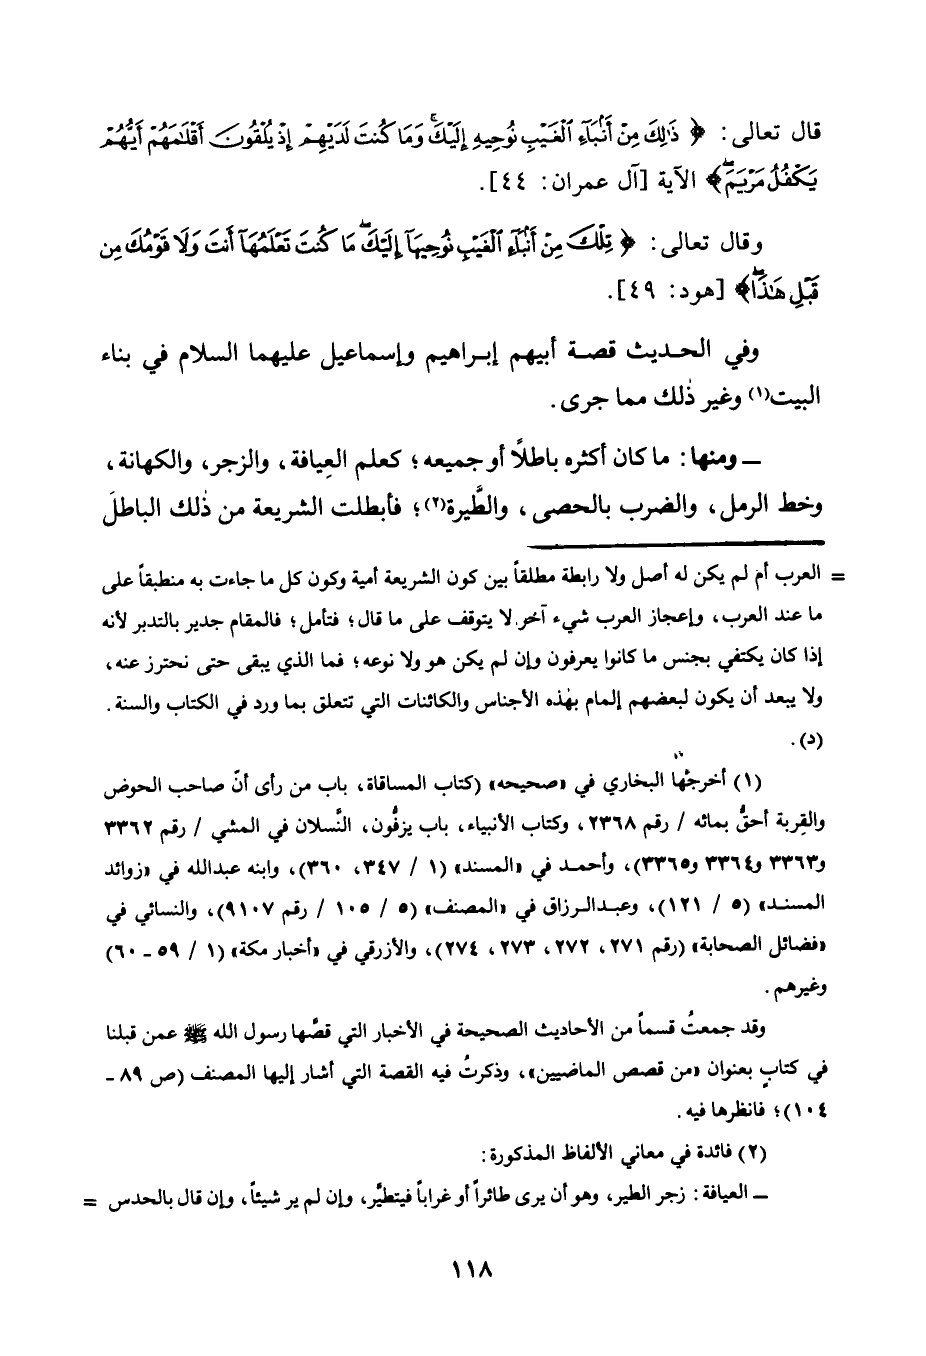 قال تعالى: ﴿ ذَٰلِكَ مِنْ أَنۢبَآءِ ٱلْغَيْبِ نُوحِيهِ إِلَيْكَ ۚ وَمَا كُنتَ لَدَيْهِمْ إِذْ يُلْقُونَ أَقْلَٰمَهُمْ أَيُّهُمْ
يَكْفُلُ مَرْيَمَ ۖ﴾ الآية [آل عمران: ٤٤].
وقال تعالى: ﴿ تِلْكَ مِنْ أَنۢبَآءِ ٱلْغَيْبِ نُوحِيهَآ إِلَيْكَ ۖ مَا كُنتَ تَعْلَمُهَآ أَنتَ وَلَا قَوْمُكَ مِن
قَبْلِ هَٰذَا ۖ﴾ [هود: ٤٩].
وفي الحديث قصة أبيهم إبراهيم وإسماعيل عليهما السلام في بناء
البيت(١) وغير ذٰلك مما جرى.
ـ ومنها: ما كان أكثره باطلاً أو جميعه؛ كعلم العِيافة، والزجر، والكهانة،
وخط الرمل، والضرب بالحصى، والطَّيرة(٢)؛ فأبطلت الشريعة من ذٰلك الباطلَ
= العرب أم لم يكن له أصل ولا رابطة مطلقاً بين كون الشريعة أمية وكون كل ما جاءت به منطبقاً على
ما عند العرب، وإعجاز العرب شيء آخر لا يتوقف على ما قال؛ فتأمل؛ فالمقام جدير بالتدبر لأنه
إذا كان يكتفي بجنس ما كانوا يعرفون وإن لم يكن هو ولا نوعه؛ فما الذي يبقى حتى نحترز عنه،
ولا يبعد أن يكون لبعضهم إلمام بهٰذه الأجناس والكائنات التي تتعلق بما ورد في الكتاب والسنة.
(د).
(١) أخرجها البخاري في «صحيحه» (كتاب المساقاة، باب من رأى أنّ صاحب الحوض
والقِربة أحقُّ بمائه / رقم ٢٣٦٨، وكتاب الأنبياء، باب يزفُّون، النَّسلان في المشي / رقم ٣٣٦٢
و٣٣٦٣ و٣٣٦٤ و٣٣٦٥)، وأحمد في «المسند» (١ / ٣٤٧، ٣٦٠)، وابنه عبدالله في «زوائد
المسند» (٥ / ١٢١)، وعبدالرزاق في «المصنف» (٥ / ١٠٥ / رقم ٩١٠٧)، والنسائي في
«فضائل الصحابة» (رقم ٢٧١، ٢٧٢، ٢٧٣، ٢٧٤)، والأزرقي في «أخبار مكة» (١ / ٥٩ ـ ٦٠)
وغيرهم.
وقد جمعتُ قسماً من الأحاديث الصحيحة في الأخبار التي قصَّها رسول الله ﷺ عمن قبلنا
في كتابٍ بعنوان «من قصص الماضيين»، وذكرتُ فيه القصة التي أشار إليها المصنف (ص ٨٩ ـ
١٠٤)؛ فانظرها فيه.
(٢) فائدة في معاني الألفاظ المذكورة:
ـ العيافة: زجر الطير، وهو أن يرى طائراً أو غراباً فيتطيَّر، وإن لم ير شيئاً، وإن قال بالحدس =
١١٨